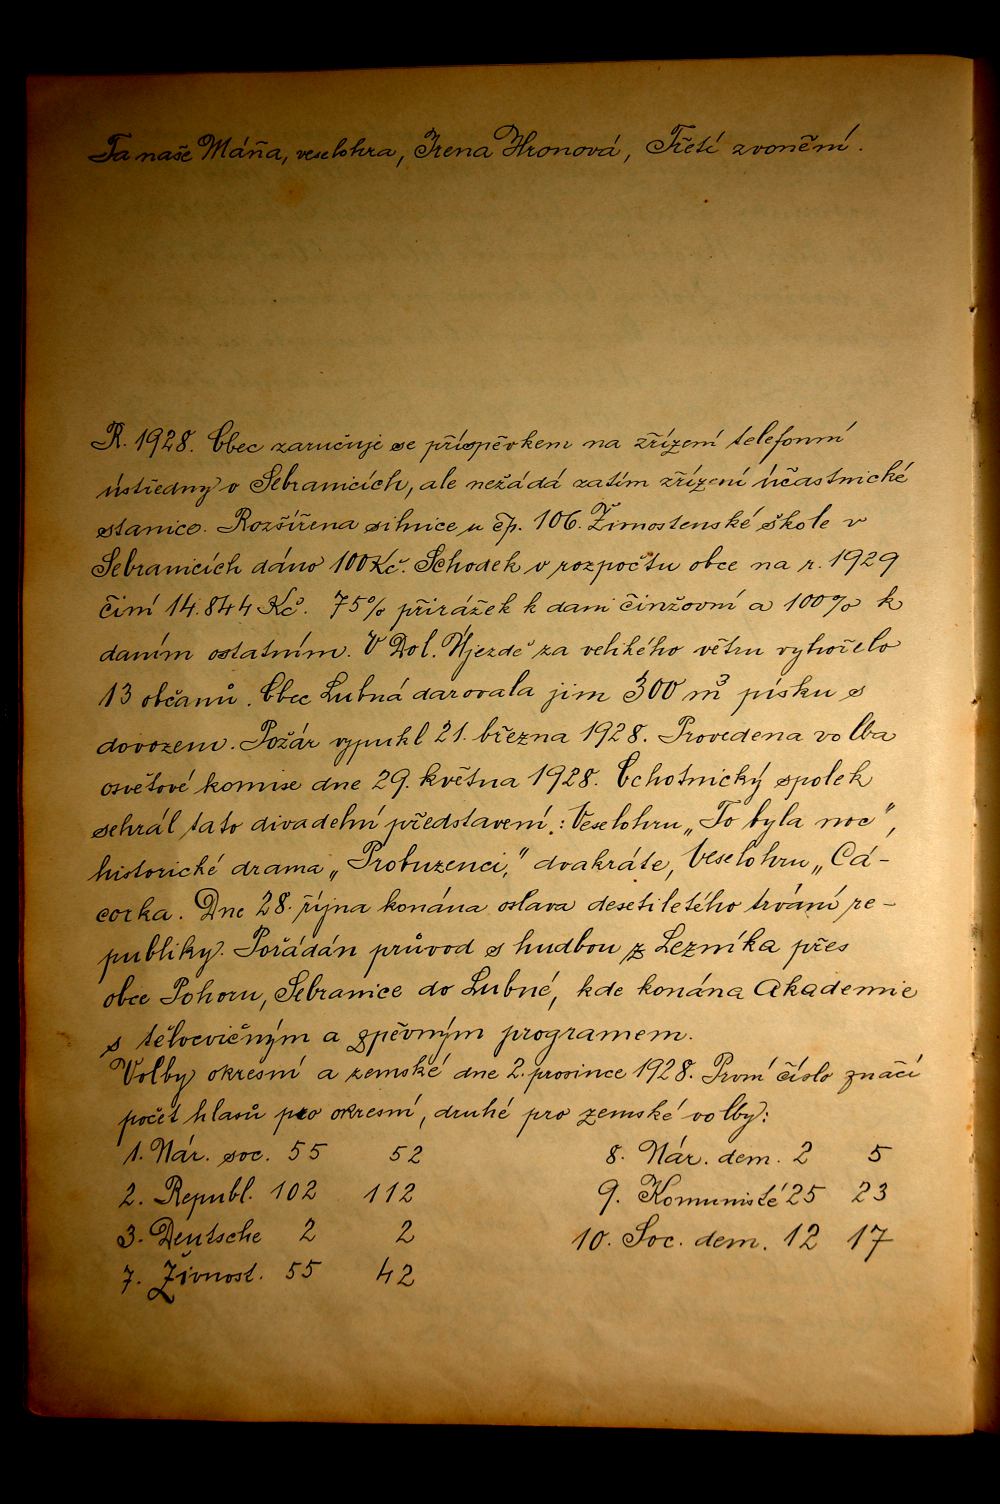 Ta naše Máňa, veselohra, Irena Hronová, Třetí zvonění.
R. 1928. Obec zaručuje se příspěvkem na zřízení telefonní
ústředny v Sebranicích, ale nežádá zatím zřízení účastnické
stanice. Rozšířena silnice u čp. 106. Živnostenské škole v
Sebranicích dáno 100 Kč. Schodek v rozpočtu obce na r. 1929
činí 14.844 Kč. 75% přirážek k dani činžovní a 100% k
daním ostatním. V Dol. Újezdě za velikého větru vyhořelo
13 občanů. Obec Lubná darovala jim 300 m³ písku s
dovozem. Požár vypukl 21. března 1928. Provedena volba
osvětové komise dne 29. května 1928. Ochotnický spolek
sehrál tato divadelní představení: Veselohru „To byla noc",
historické drama „Probuzenci," dvakráte, Veselohru „Cá-
corka. Dne 28. října konána oslava desetiletého trvání re-
publiky. Pořádán průvod s hudbou z Lezníka přes
obce Pohoru, Sebranice do Lubné, kde konána Akademie
s tělocvičným a zpěvným programem.
Volby okresní a zemské dne 2. prosince 1928. První číslo značí
počet hlasů pro okresní, druhé pro zemské volby:
1. Nár. soc. 55 52
2. Republ. 102 112
3. Deutsche 2 2
7. Živnost. 55 42
8. Nár. dem. 2 5
9. Komunisté 25 23
10. Soc. dem. 12 17